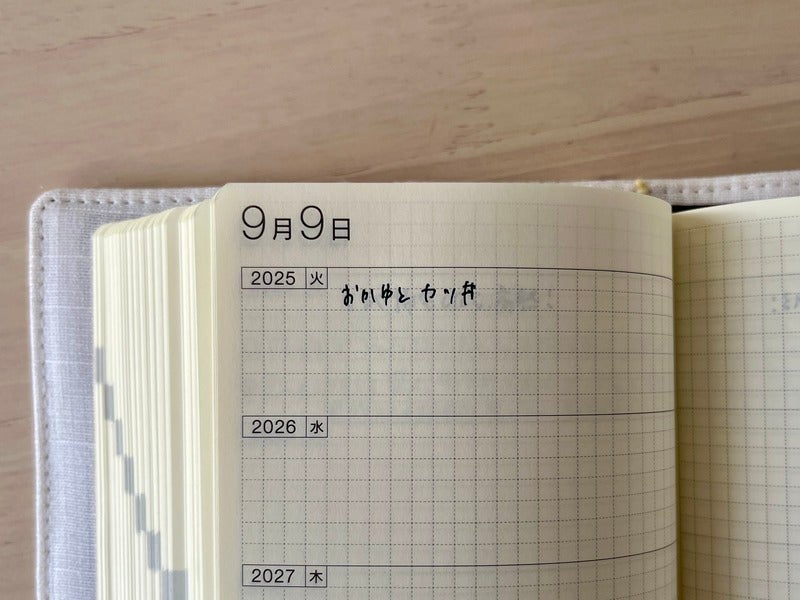 9月9日
2025 火
おかゆと カツ丼
2026 水
2027 木